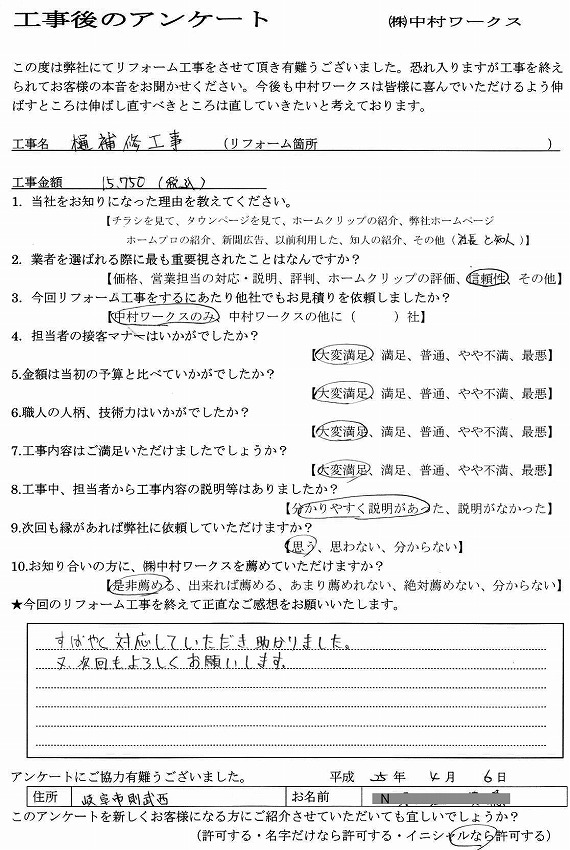 工事後のアンケート ㈱中村ワークス
この度は弊社にてリフォーム工事をさせて頂き有難うございました。恐れ入りますが工事を終え
られてお客様の本音をお聞かせください。今後も中村ワークスは皆様に喜んでいただけるよう伸
ばすところは伸ばし直すべきところは直していきたいと考えております。
工事名 樋補修工事 (リフォーム箇所 )
工事金額 15,750 (税込)
1. 当社をお知りになった理由を教えてください。
【チラシを見て、タウンページを見て、ホームクリップの紹介、弊社ホームページ
ホームプロの紹介、新聞広告、以前利用した、知人の紹介、その他(社長と知人)】
2. 業者を選ばれる際に最も重要視されたことはなんですか?
【価格、営業担当の対応・説明、評判、ホームクリップの評価、信頼性、その他】
3. 今回リフォーム工事をするにあたり他社でもお見積りを依頼しましたか?
【中村ワークスのみ、中村ワークスの他に( )社】
4. 担当者の接客マナーはいかがでしたか?
【大変満足、満足、普通、やや不満、最悪】
5.金額は当初の予算と比べていかがでしたか?
【大変満足、満足、普通、やや不満、最悪】
6.職人の人柄、技術力はいかがでしたか?
【大変満足、満足、普通、やや不満、最悪】
7.工事内容はご満足いただけましたでしょうか?
【大変満足、満足、普通、やや不満、最悪】
8.工事中、担当者から工事内容の説明等はありましたか?
【分かりやすく説明があった、説明がなかった】
9.次回も縁があれば弊社に依頼していただけますか?
【思う、思わない、分からない】
10.お知り合いの方に、㈱中村ワークスを薦めていただけますか?
【是非薦める、出来れば薦める、あまり薦めれない、絶対薦めない、分からない】
★今回のリフォーム工事を終えて正直なご感想をお願いいたします。
すばやく対応していただき助かりました。
又、次回もよろしくお願いします。
アンケートにご協力有難うございました。 平成 25年 4月 6日
住所 岐阜市則武西 お名前 N
このアンケートを新しくお客様になる方にご紹介させていただいても宜しいでしょうか?
(許可する・名字だけなら許可する・イニシャルなら許可する)